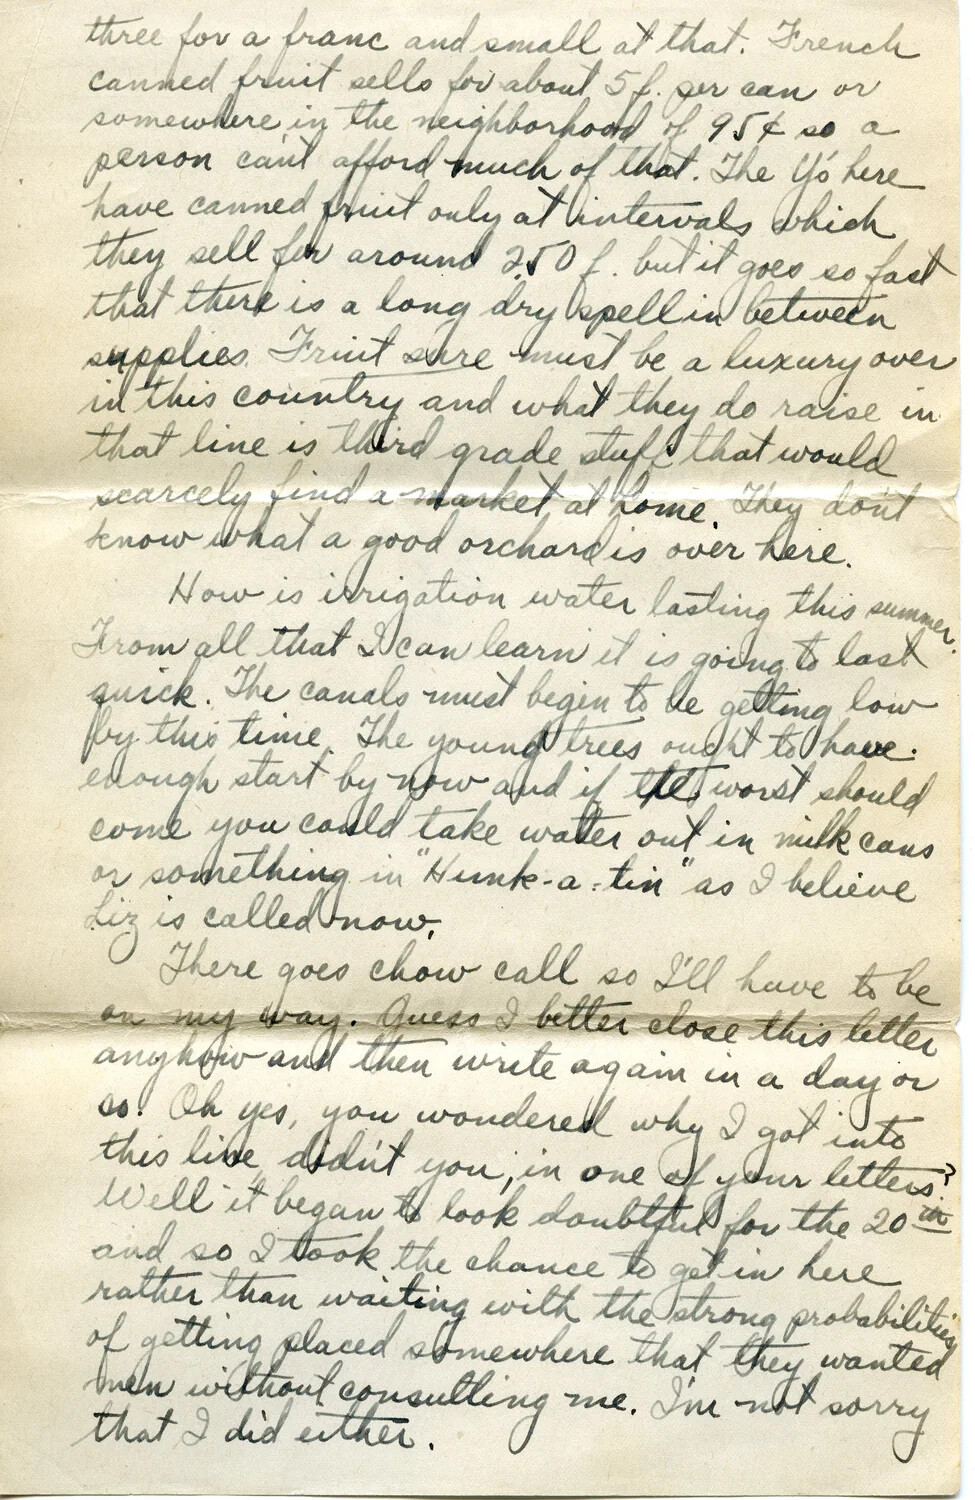 three for a franc and small at that. French
canned fruit sells for about 5 f. per can or
somewhere in the neighborhood of 95¢ so a
person can't afford much of that. The Y's here
have canned fruit only at intervals which
they sell for around 2.50 f. but it goes so fast
that there is a long dry spell in between
supplies. Fruit sure must be a luxury over
in this country and what they do raise in
that line is third grade stuff that would
scarcely find a market at home. They don't
know what a good orchard is over here.
How is irrigation water lasting this summer.
From all that I can learn it is going to last
quick. The canals must begin to be getting low
by this time. The young trees ought to have
enough start by now and if the worst should
come you could take water out in milk cans
or something in "Hunk-a-tin" as I believe
Liz is called now.
There goes chow call so I'll have to be
on my way. Guess I better close this letter
anyhow and then write again in a day or
so. Oh yes, you wondered why I got into
this line didn't you, in one of your letters?
Well it began to look doubtful for the 20th
and so I took the chance to get in here
rather than waiting with the strong probabilities
of getting placed somewhere that they wanted
men without consulting me. I'm not sorry
that I did either.